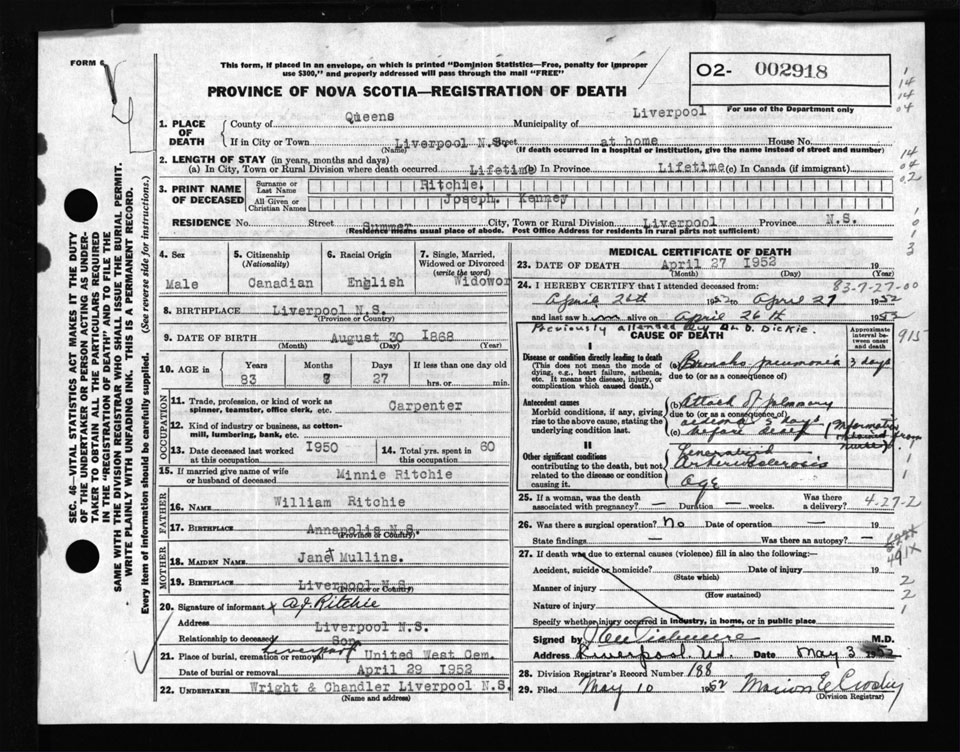 FORM 6
This form, if placed in an envelope, on which is printed "Dominion Statistics—Free, penalty for improper
use $300," and properly addressed will pass through the mail "FREE"
O2- 002918
For use of the Department only
PROVINCE OF NOVA SCOTIA—REGISTRATION OF DEATH
1. PLACE OF DEATH
County of Queens Municipality of Liverpool
If in City or Town Liverpool N.S. Street at home House No.
(Name) (If death occurred in a hospital or institution, give the name instead of street and number)
2. LENGTH OF STAY (in years, months and days)
(a) In City, Town or Rural Division where death occurred Lifetime (b) In Province Lifetime (c) In Canada (if immigrant)
3. PRINT NAME OF DECEASED
Surname or Last Name Ritchie.
All Given or Christian Names Joseph. Kenney
RESIDENCE No. Street Summer City, Town or Rural Division Liverpool Province N.S.
(Residence means usual place of abode. Post Office Address for residents in rural parts not sufficient)
4. Sex Male
5. Citizenship (Nationality) Canadian
6. Racial Origin English
7. Single, Married, Widowed or Divorced (write the word) Widowor
8. BIRTHPLACE Liverpool N.S.
(Province or Country)
9. DATE OF BIRTH August 30 I868
(Month) (Day) (Year)
10. AGE in Years Months Days If less than one day old
83 27 hrs. or min.
OCCUPATION
11. Trade, profession, or kind of work as spinner, teamster, office clerk, etc. Carpenter
12. Kind of industry or business, as cotton-mill, lumbering, bank, etc.
13. Date deceased last worked at this occupation I950
14. Total yrs. spent in this occupation 60
15. If married give name of wife or husband of deceased Minnie Ritchie
FATHER
16. NAME William Ritchie
17. BIRTHPLACE Annapolis N.S.
(Province or Country)
MOTHER
18. MAIDEN NAME Janet Mullins.
19. BIRTHPLACE Liverpool N.S.
(Province or Country)
20. Signature of informant x A.J. Ritchie
Address Liverpool N.S.
Relationship to deceased Son
21. Place of burial, cremation or removal Liverpool United West Cem.
Date of burial or removal April 29 I952
22. UNDERTAKER Wright & Chandler Liverpool N.S.
(Name and address)
MEDICAL CERTIFICATE OF DEATH
23. DATE OF DEATH April 27 I952 19
(Month) (Day) (Year)
24. I HEREBY CERTIFY that I attended deceased from: 83-7-27-00
April 26th 1952 to April 27 1952
and last saw h im alive on April 26th 1952
Previously attended by Dr. D. Dickie.
CAUSE OF DEATH
Approximate interval between onset and death
915
I
Disease or condition directly leading to death
(This does not mean the mode of dying, e.g., heart failure, asthenia, etc. It means the disease, injury, or complication which caused death.)
(a) Broncho pneumonia 3 days
due to (or as a consequence of)
Antecedent causes
Morbid conditions, if any, giving rise to the above cause, stating the underlying condition last.
(b) Attack of pulmonary
due to (or as a consequence of)
oedema 3 days
(c) before death
Information obtained from
II
Other significant conditions
contributing to the death, but not related to the disease or condition causing it.
Generalized
Arteriosclerosis
Age
25. If a woman, was the death associated with pregnancy? — Duration — weeks. Was there a delivery? 4-27-2
26. Was there a surgical operation? No Date of operation — 19
State findings — Was there an autopsy? —
491X
27. If death was due to external causes (violence) fill in also the following:-
Accident, suicide or homicide? Date of injury 19
(State which)
Manner of injury
(How sustained)
Nature of injury
Specify whether injury occurred in industry, in home, or in public place
Signed by M.D.
Address Liverpool. N.S. Date May 3 1952
28. Division Registrar's Record Number 188
29. Filed May 10 1952 Marion E Crosby
(Division Registrar)
SEC. 46—VITAL STATISTICS ACT MAKES IT THE DUTY
OF THE UNDERTAKER OR PERSON ACTING AS UNDER-
TAKER TO OBTAIN ALL THE PARTICULARS REQUIRED
IN THE "REGISTRATION OF DEATH" AND TO FILE THE
SAME WITH THE DIVISION REGISTRAR WHO SHALL ISSUE THE BURIAL PERMIT.
WRITE PLAINLY WITH UNFADING INK. THIS IS A PERMANENT RECORD.
Every item of information should be carefully supplied. (See reverse side for instructions.)